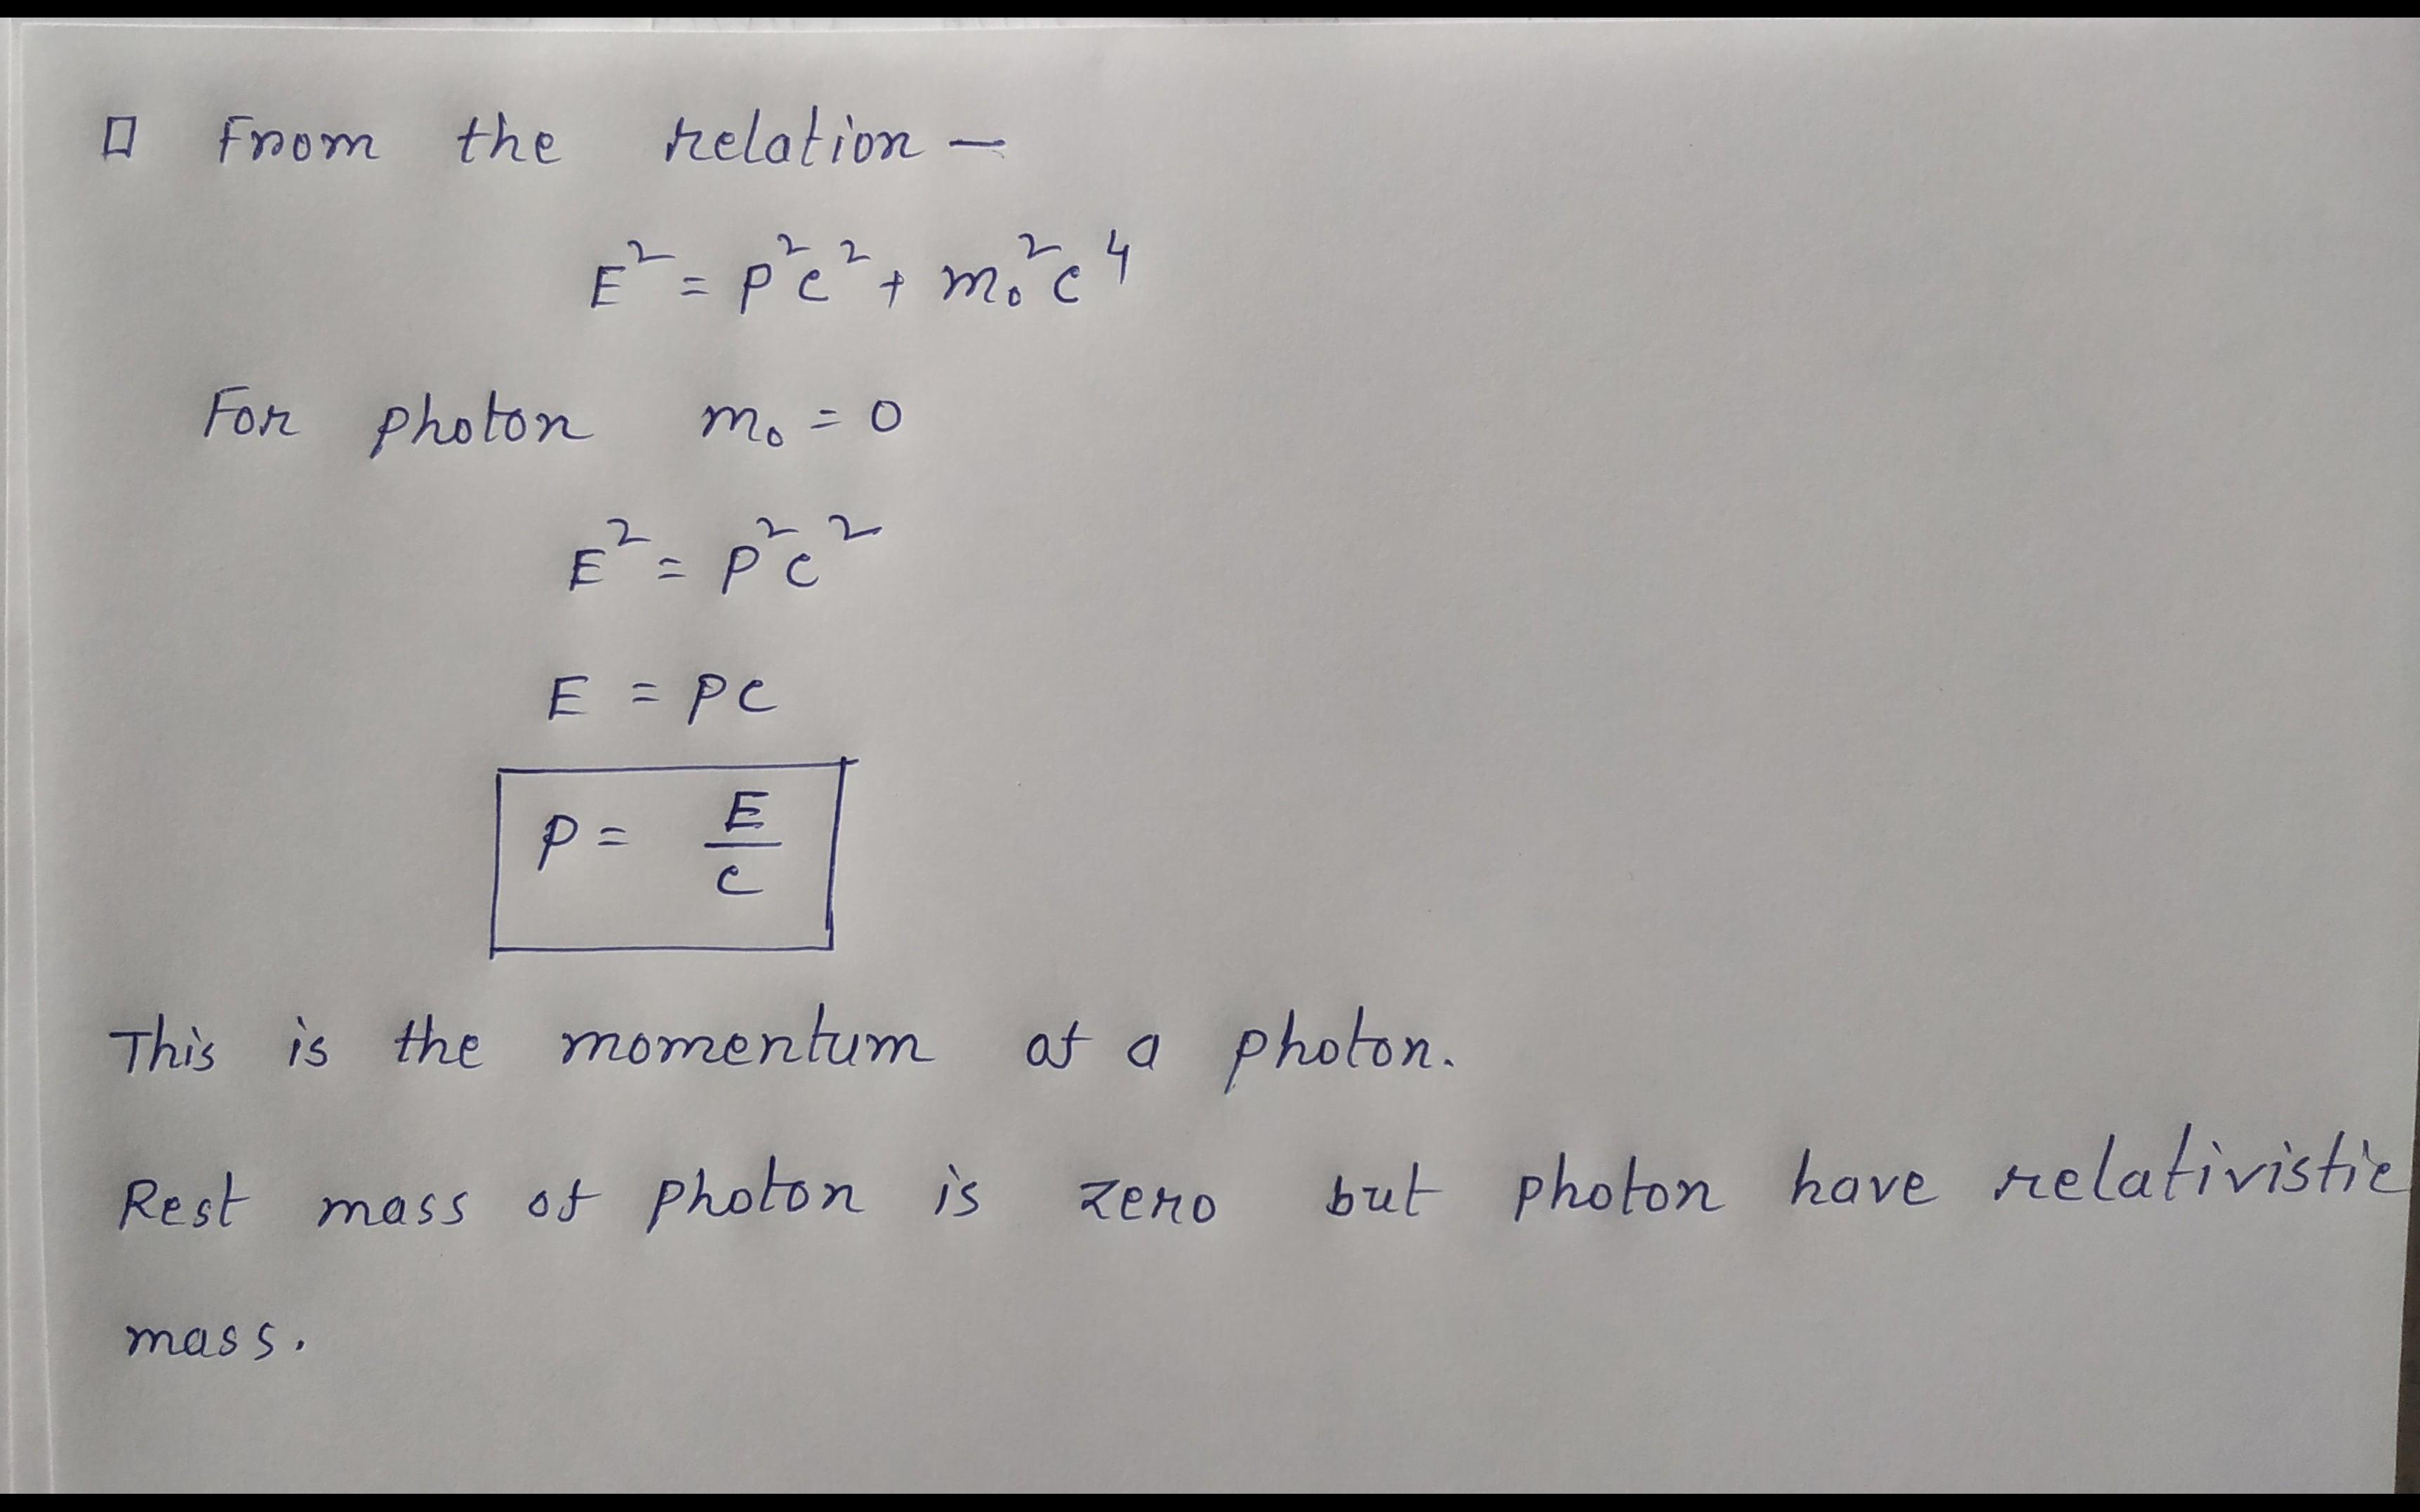 □ From the relation —
E² = p²c² + m₀²c⁴
For photon m₀ = 0
E² = p²c²
E = pc
P = E/c
This is the momentum of a photon.
Rest mass of photon is zero but photon have relativistic
mass.